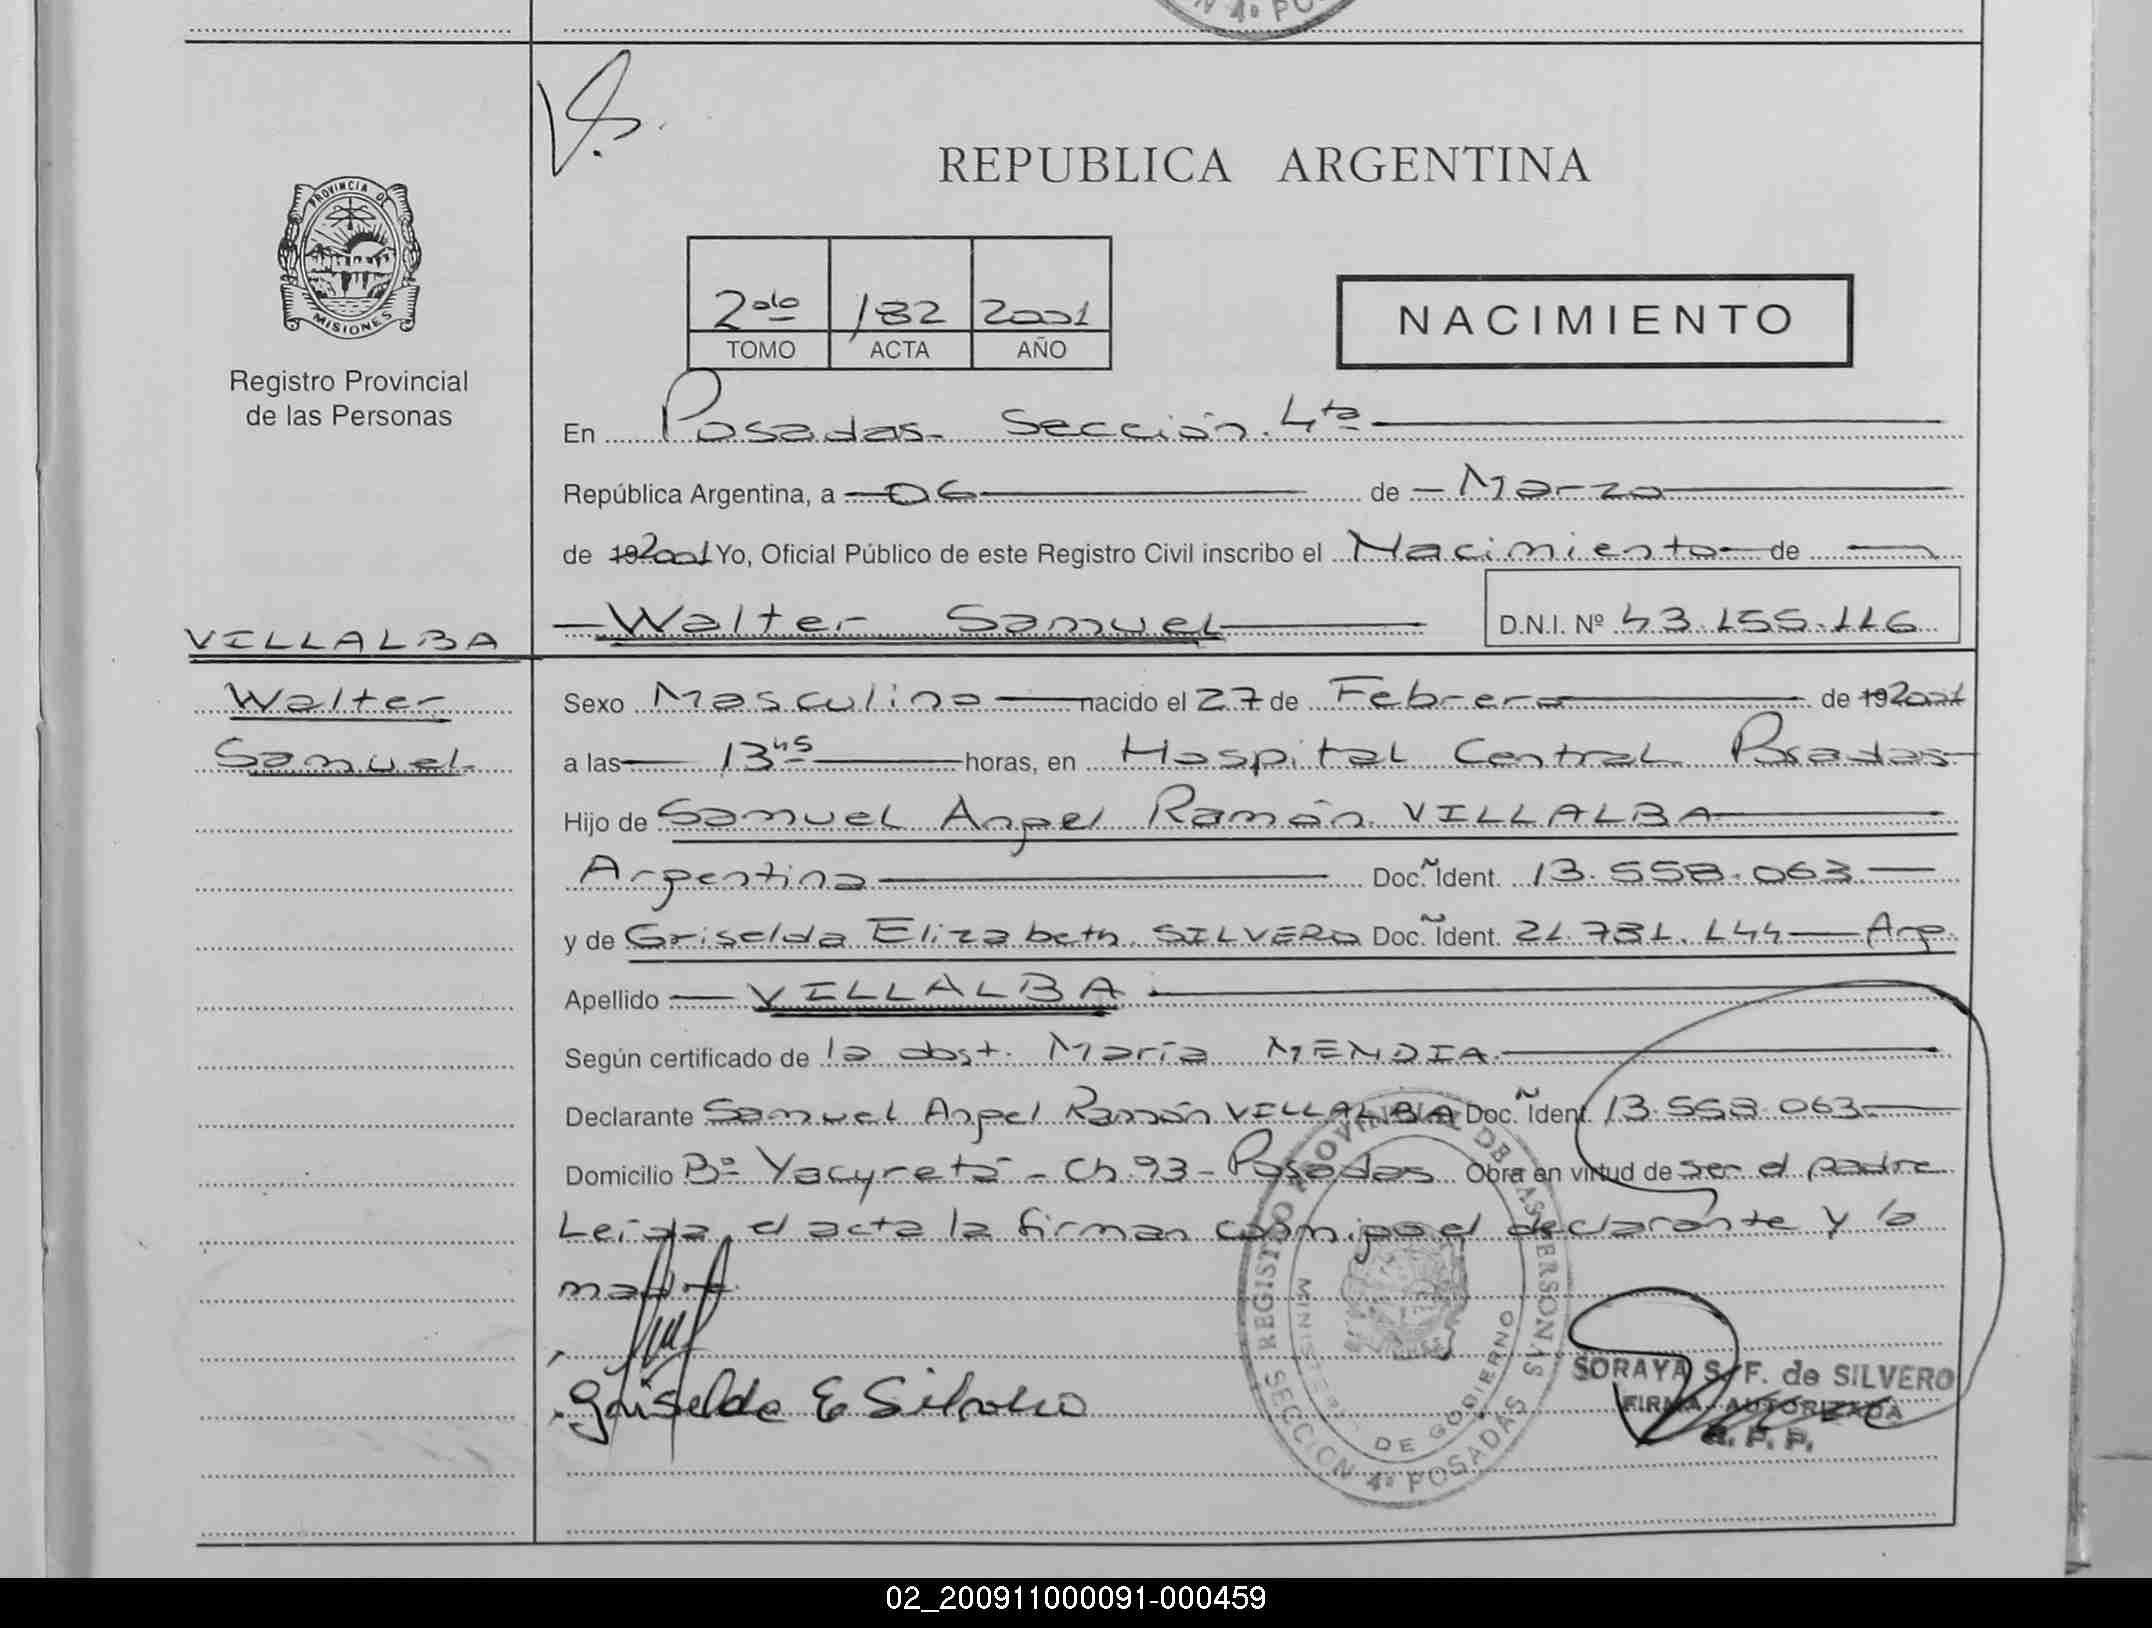 N 4º PO
REPUBLICA ARGENTINA
PROVINCIA DE
MISIONES
Registro Provincial
de las Personas
2do 182 2001
TOMO ACTA AÑO
NACIMIENTO
En Posadas - Sección 4ta
República Argentina, a 06 de Marzo
de 19 2001 Yo, Oficial Público de este Registro Civil inscribo el Nacimiento de
Walter Samuel D.N.I. Nº 43.155.116
VILLALBA
Walter
Samuel
Sexo Masculino nacido el 27 de Febrero de 19 2001
a las 13 45 horas, en Hospital Central Posadas
Hijo de Samuel Angel Ramón VILLALBA
Argentina Doc. Ident. 13.558.063
y de Griselda Elizabeth SILVERO Doc. Ident. 21.731.144 Arg.
Apellido VILLALBA
Según certificado de la obst. María MENDIA
Declarante Samuel Angel Ramón VILLALBA Doc. Ident. 13.558.063
Domicilio Bº Yacyretá - Ch. 93 - Posadas Obra en virtud de ser el padre
Leída el acta la firman conmigo el declarante y la
madre
Griselda E Silvero
REGISTRO PROVINCIAL DE LAS PERSONAS
MINISTERIO DE GOBIERNO
SECCION 4º POSADAS
SORAYA S. F. de SILVERO
FIRMA AUTORIZADA
R. P. P.
02_200911000091-000459